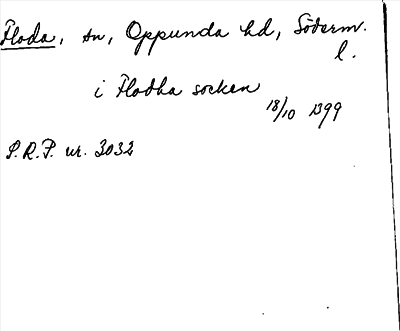 Floda, sn, Oppunda hd, Söderm.
l.
i Flodha socken
18/10 1399
S.R.P. nr. 3032